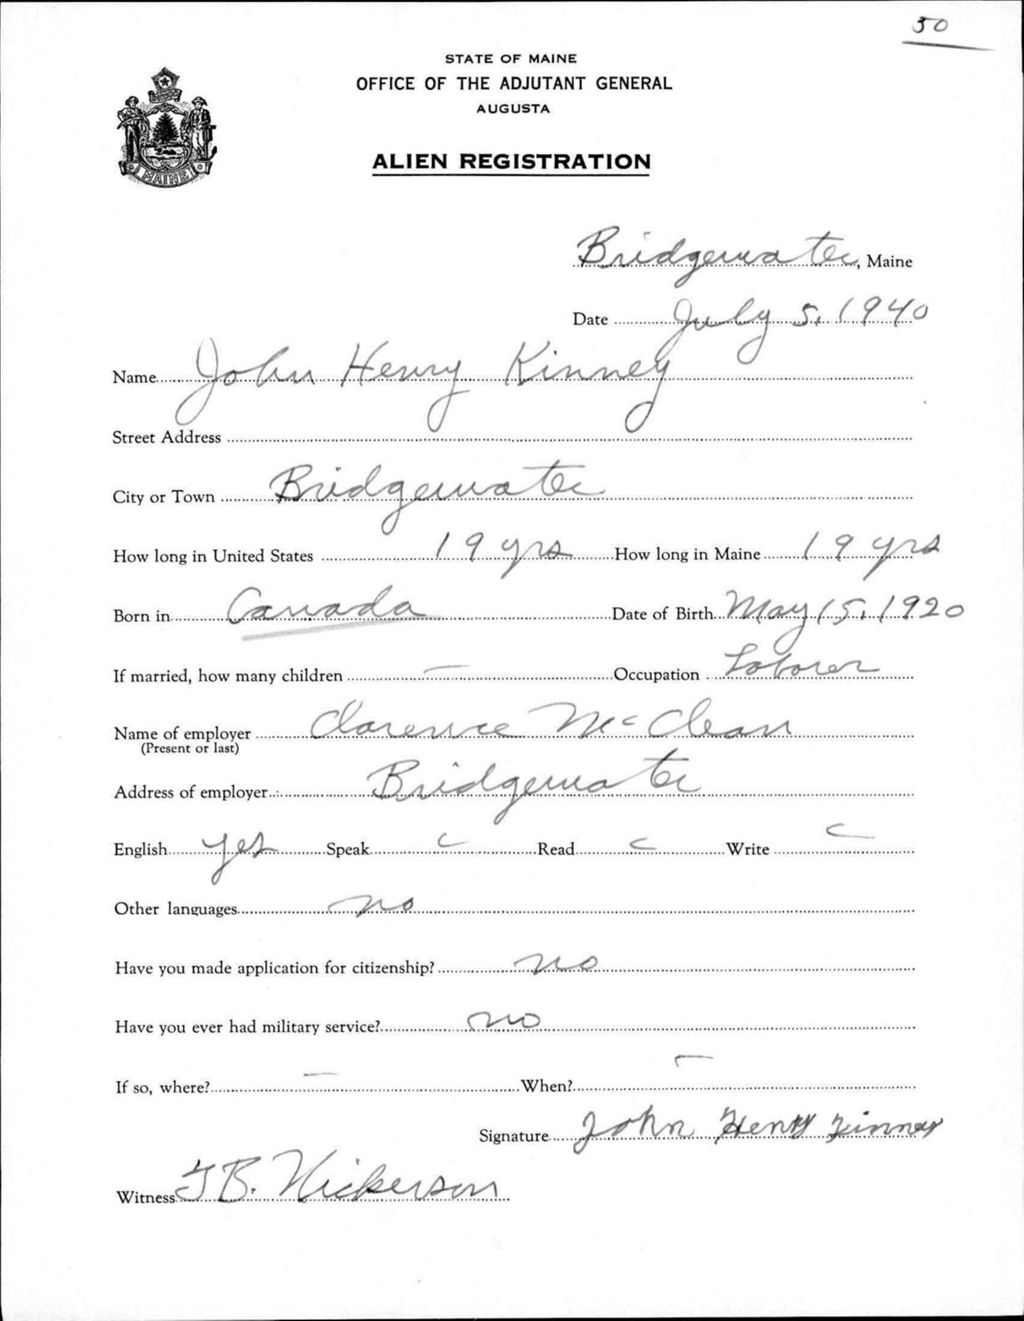 50
STATE OF MAINE
OFFICE OF THE ADJUTANT GENERAL
AUGUSTA
ALIEN REGISTRATION
MAINE
Bridgewater, Maine
Date July 5, 1940
Name John Henry Kinney
Street Address
City or Town Bridgewater
How long in United States 19 yrs How long in Maine 19 yrs
Born in Canada Date of Birth May 15, 1920
If married, how many children — Occupation Laborer
Name of employer Clarence McClean
(Present or last)
Address of employer Bridgewater
English yes Speak Read Write
Other languages no
Have you made application for citizenship? no
Have you ever had military service? no
If so, where? — When? —
Signature John Henry Kinney
Witness B. Nickerson